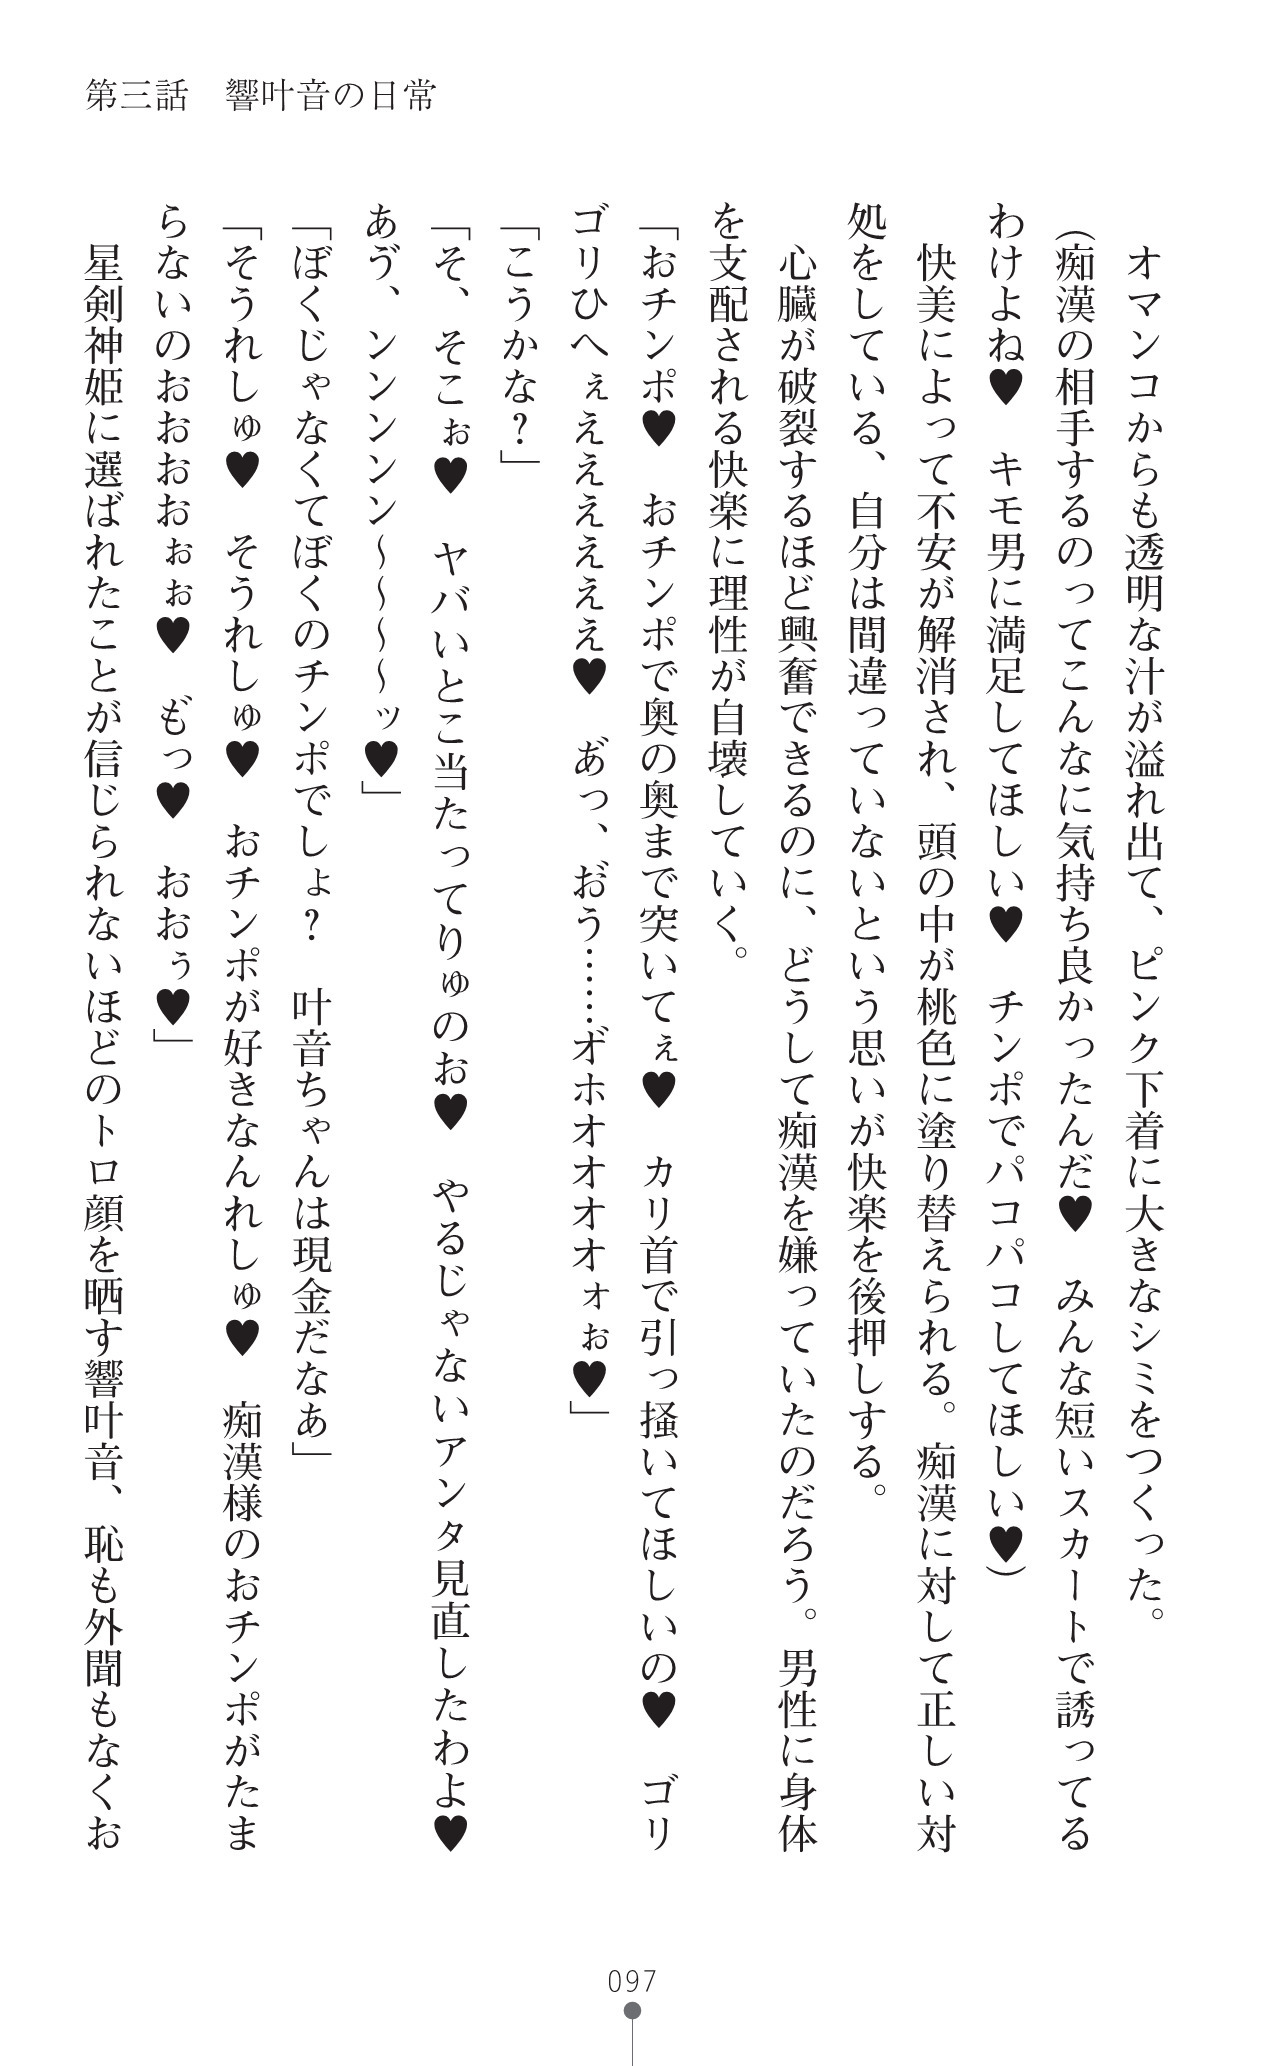 第三話　響叶音の日常
　オマンコからも透明な汁が溢れ出て、ピンク下着に大きなシミをつくった。
（痴漢の相手するのってこんなに気持ち良かったんだ♥　みんな短いスカートで誘ってる
わけよね♥　キモ男に満足してほしい♥　チンポでパコパコしてほしい♥）
　快美によって不安が解消され、頭の中が桃色に塗り替えられる。痴漢に対して正しい対
処をしている、自分は間違っていないという思いが快楽を後押しする。
　心臓が破裂するほど興奮できるのに、どうして痴漢を嫌っていたのだろう。男性に身体
を支配される快楽に理性が自壊していく。
「おチンポ♥　おチンポで奥の奥まで突いてぇ♥　カリ首で引っ掻いてほしいの♥　ゴリ
ゴリひへぇええええええ♥　あ゙っ、お゙う……オ゙ホオオオオオォぉ♥」
「こうかな？」
「そ、そこぉ♥　ヤバいとこ当たってりゅのお♥　やるじゃないアンタ見直したわよ♥
あゔ、ンンンンン～～～～ッ♥」
「ぼくじゃなくてぼくのチンポでしょ？　叶音ちゃんは現金だなあ」
「そうれしゅ♥　そうれしゅ♥　おチンポが好きなんれしゅ♥　痴漢様のおチンポがたま
らないのおおおおぉぉ♥　も゙っ♥　おおぅ♥」
　星剣神姫に選ばれたことが信じられないほどのトロ顔を晒す響叶音、恥も外聞もなくお
097